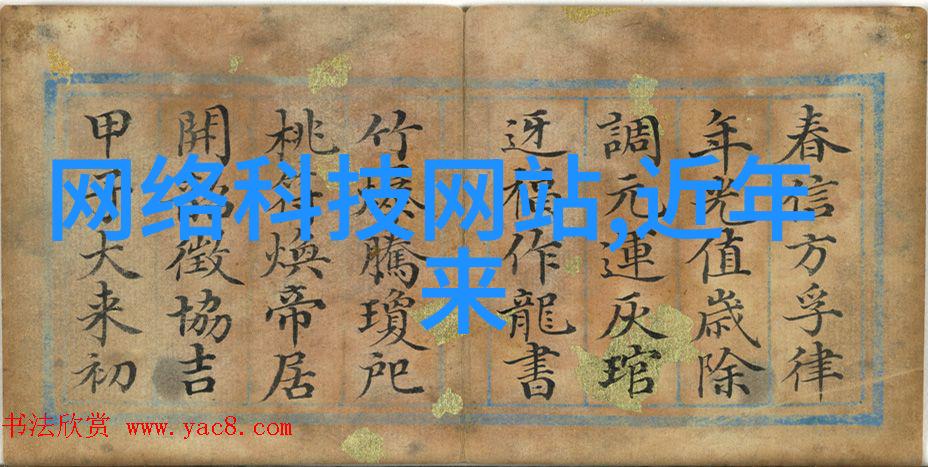 春信方孚律
年光值歲除
調元連灰琯
迓福作龍書
竹爆騰瓊戺
桃符煥帝居
開韶徵協吉
甲子大来初
网络科技网站,近年
来
书法欣赏 www.yac8.com